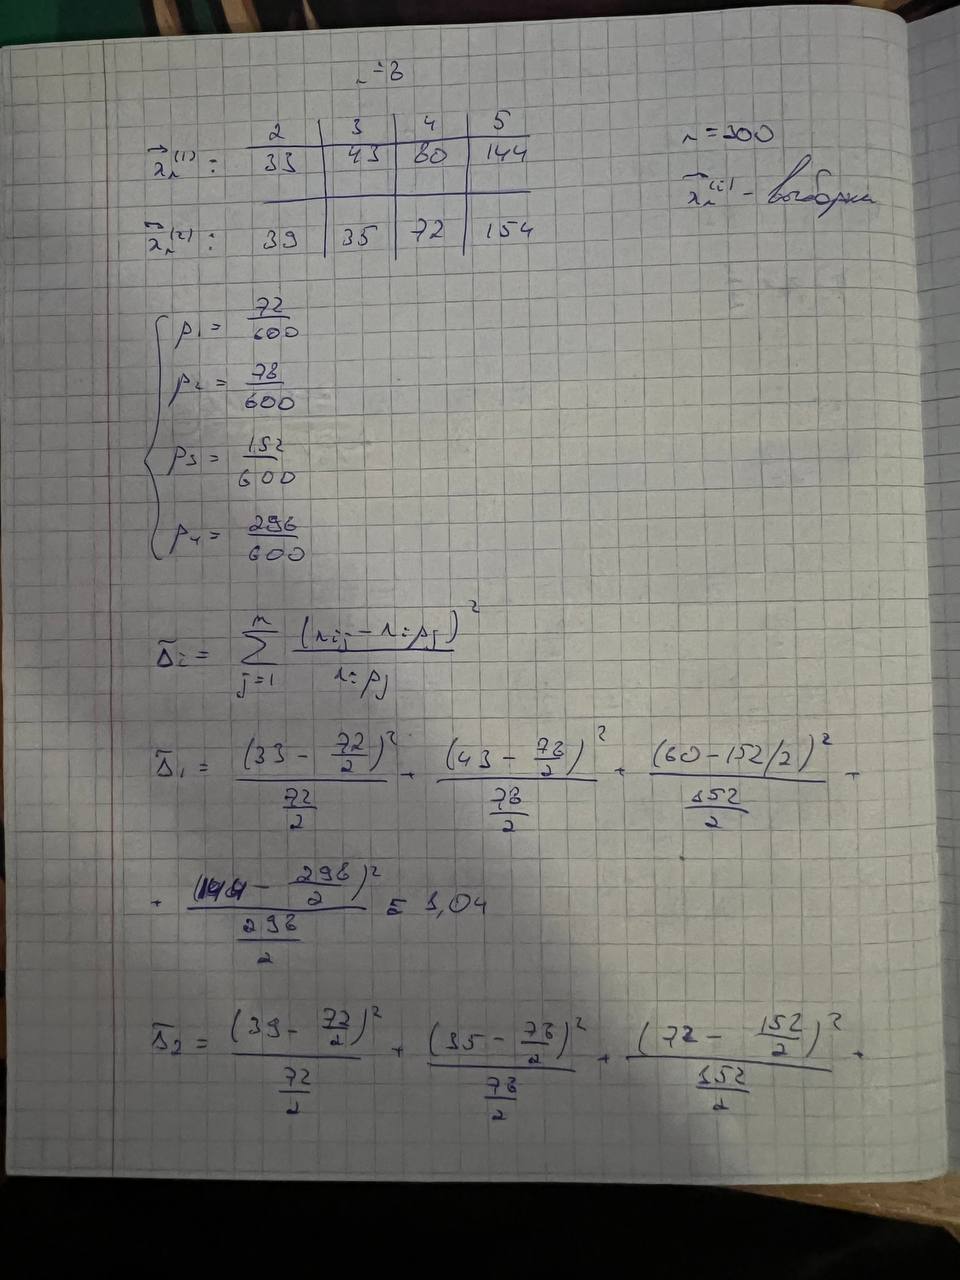 №3
2 | 3 | 4 | 5
x⃗ₙ⁽¹⁾: 33 | 43 | 80 | 144
n = 300
x⃗ₙ⁽ⁱ⁾ - выборка
x⃗ₙ⁽²⁾: 39 | 35 | 72 | 154
p₁ = 72/600
p₂ = 78/600
p₃ = 152/600
p₄ = 298/600
Δ̄ᵢ = ∑_{j=1}^{m} (nᵢⱼ - nᵢpⱼ)² / nᵢpⱼ
Δ̄₁ = (33 - 72/2)² / (72/2) + (43 - 78/2)² / (78/2) + (80 - 152/2)² / (152/2) +
+ (144 - 298/2)² / (298/2) = 1,04
Δ̄₂ = (39 - 72/2)² / (72/2) + (35 - 78/2)² / (78/2) + (72 - 152/2)² / (152/2) +